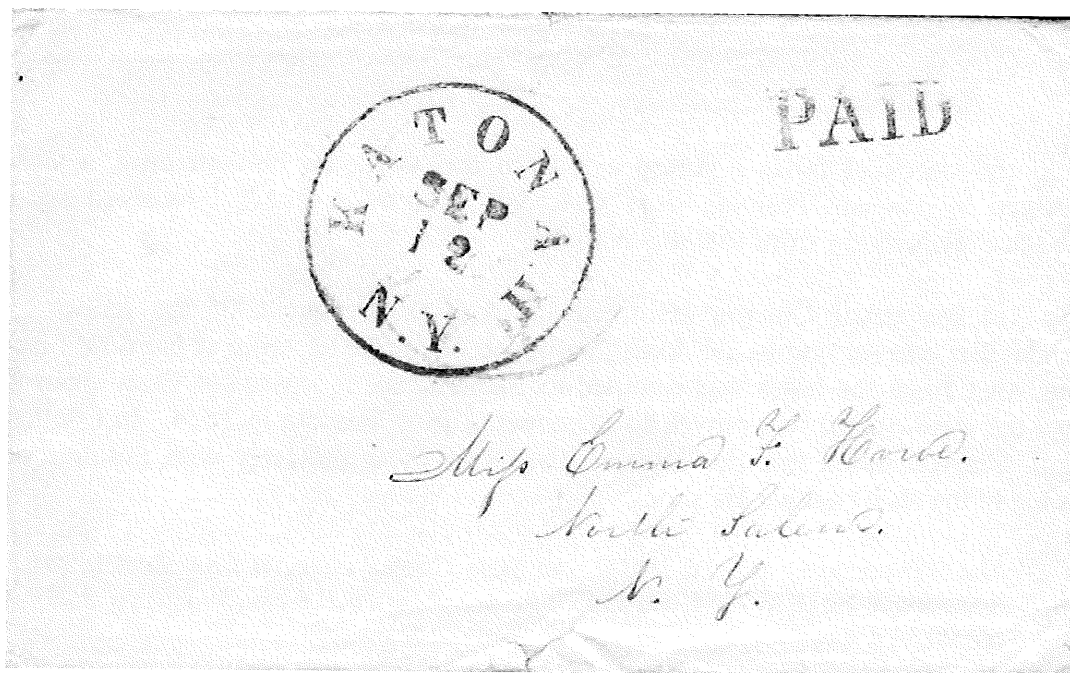 KATONAH
SEP
12
N.Y.
PAID
Miss Emma F.
North Salem.
N. Y.